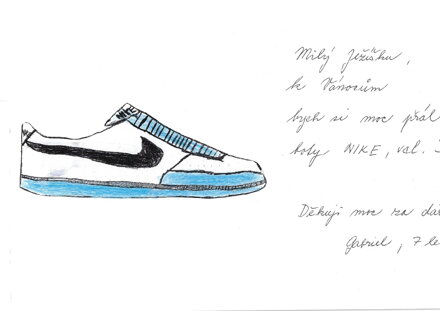 NIKE
Milý Ježíšku,
k Vánocům
bych si moc přál
boty NIKE, vel.
Děkuji moc za
Gabriel, 7